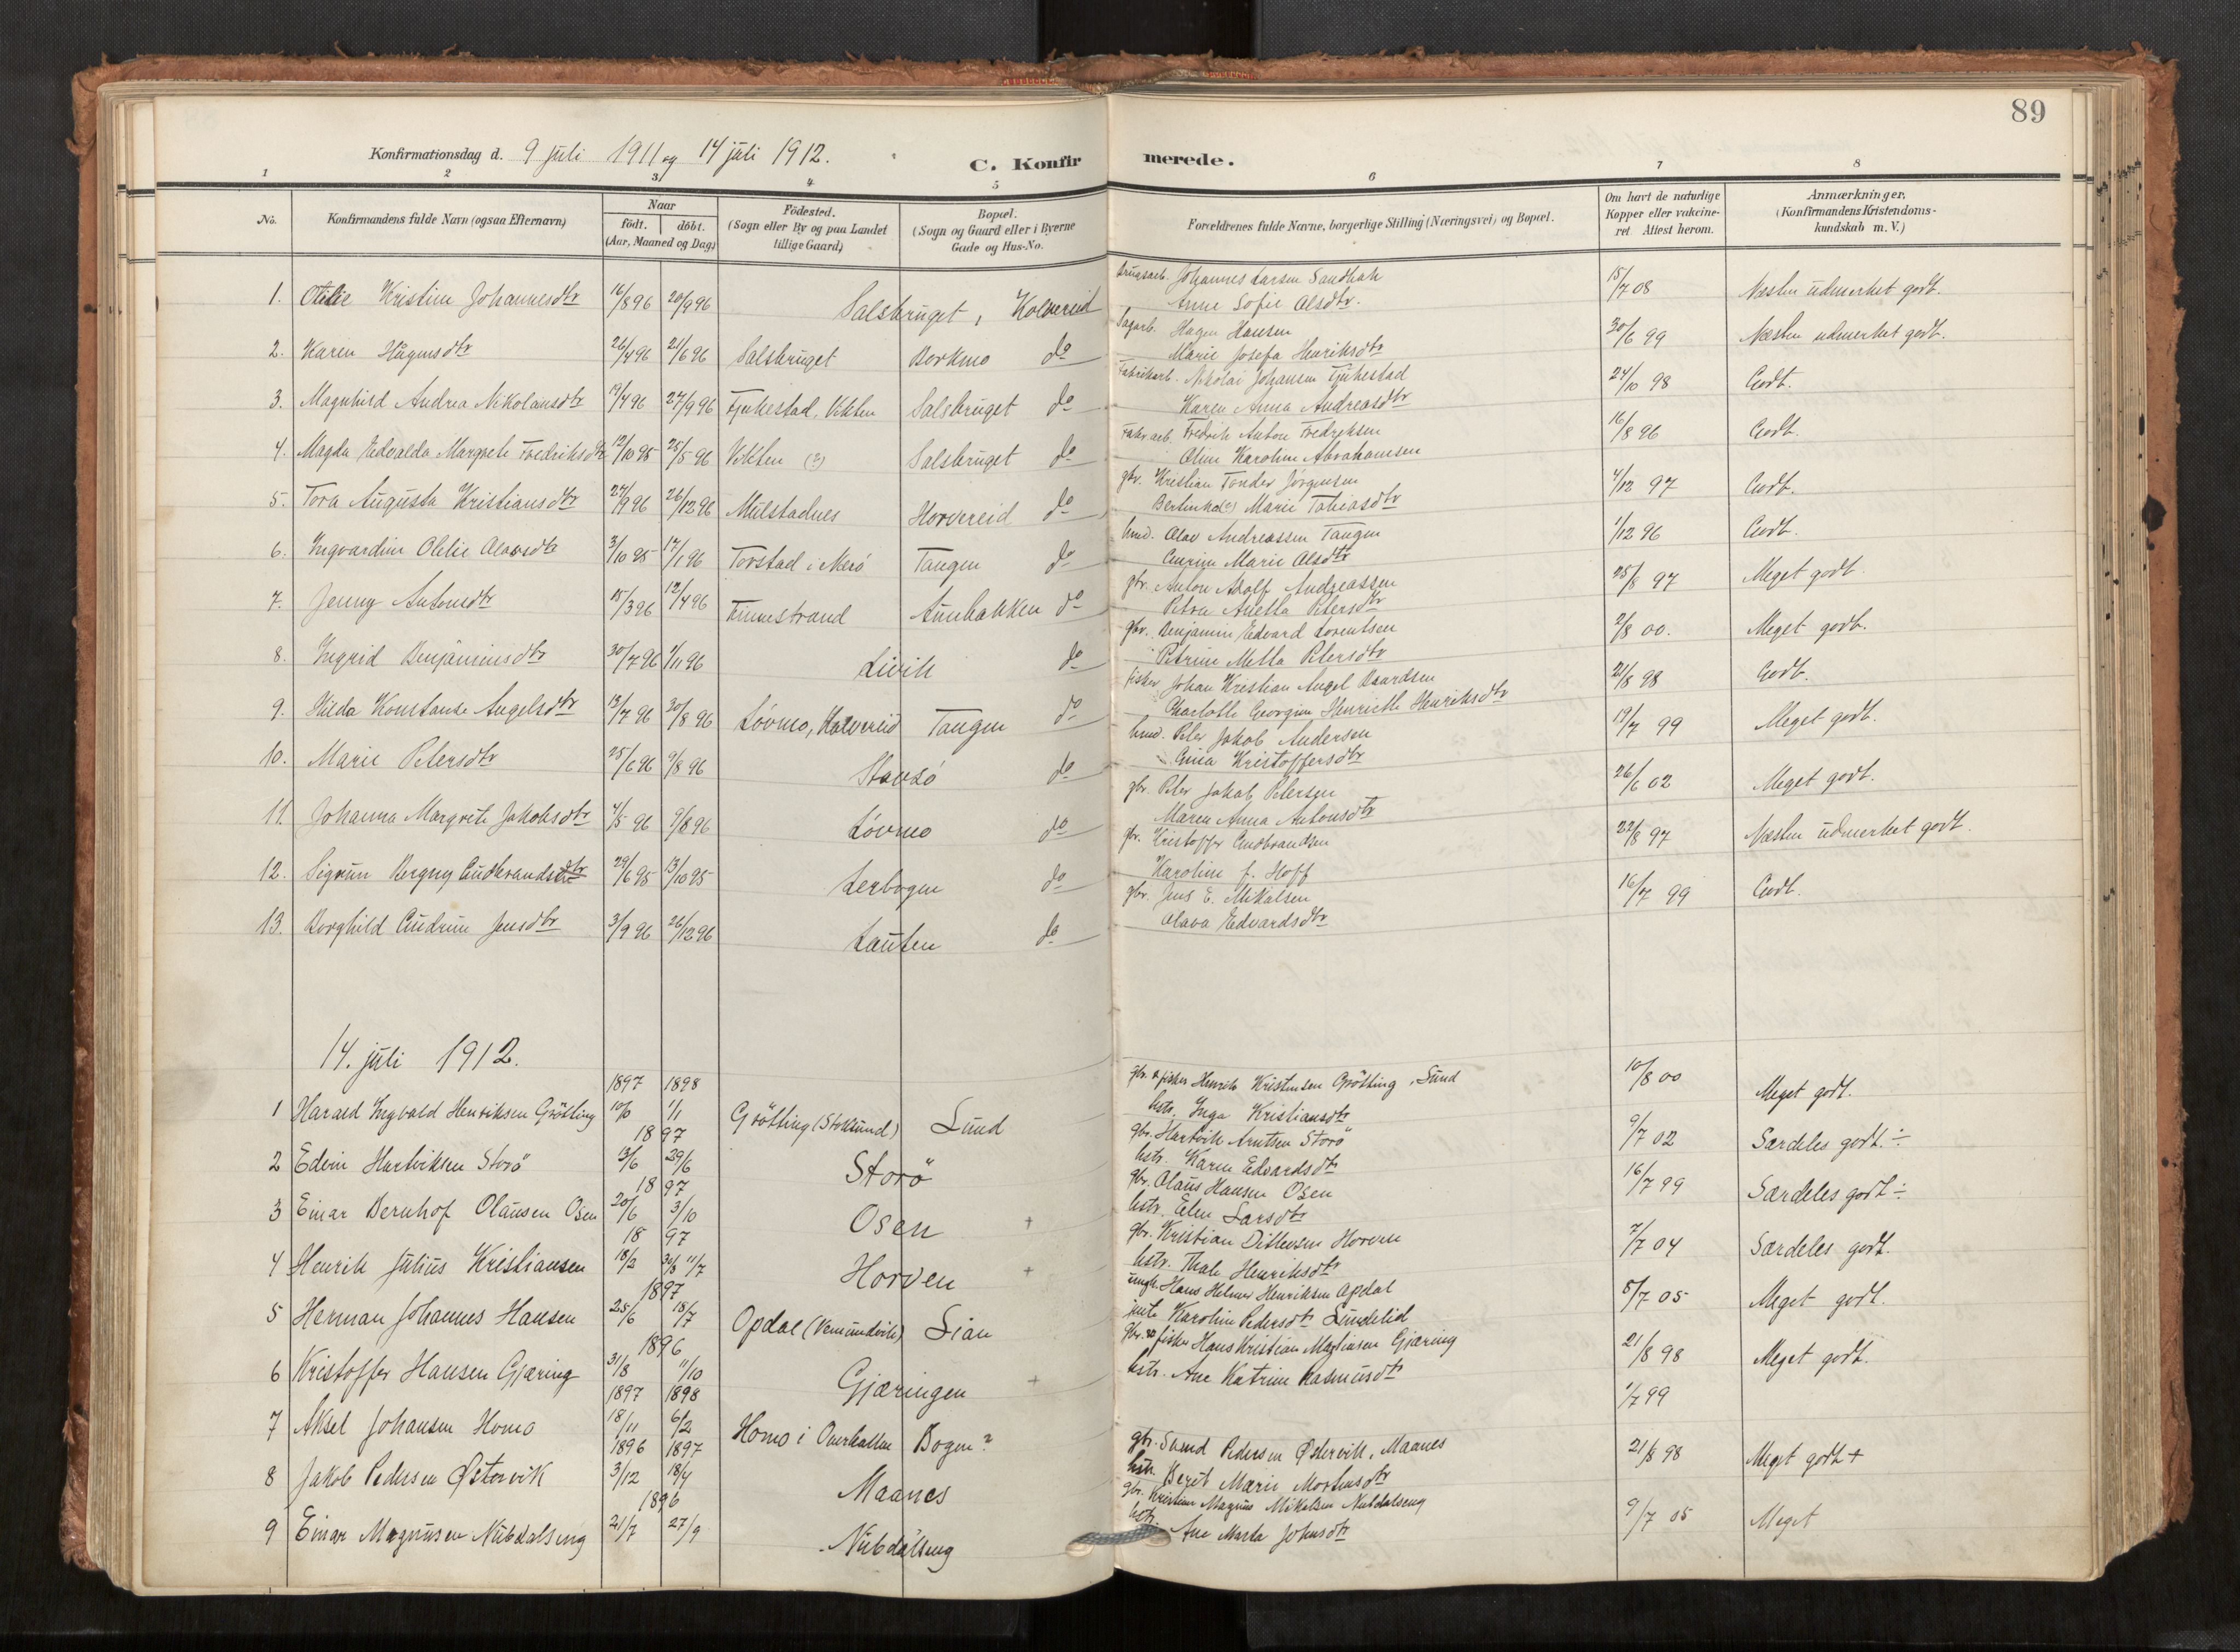 89
Konfirmationsdag d. 9 juli 1911 og 14 juli 1912.
C. Konfirmerede.
1 2 3 4 5 6 7 8
No.
Konfirmandens fulde Navn (ogsaa Efternavn)
Naar
födt. döbt.
(Aar, Maaned og Dag)
Födested.
(Sogn eller By og paa Landet
tillige Gaard)
Bopæl.
(Sogn og Gaard eller i Byerne
Gade og Hus-No.
Forældrenes fulde Navne, borgerlige Stilling (Næringsvei) og Bopæl.
Om havt de naturlige
Kopper eller vakcine-
ret Attest herom.
Anmærkninger.
(Konfirmandens Kristendoms-
kundskab m. V.)
1. Otilie Kristine Johannesdtr 16/8 96 20/9 96 Salsbruget, Kolvereid Brugsarb. Johannes Larsen Sandbak 15/7 08 Næsten udmerket godt.
Anne Sofie Olsdtr.
2. Karen Hågensdtr 26/4 96 21/6 96 Salsbruget Borkmo do Sagarb. Hagen Hansen 30/6 99 Næsten udmerket godt.
Marie Josefa Henriksdtr
3. Magnhild Andrea Nikolaisdtr 19/4 96 27/9 96 Fjukestad, Vikten Salsbruget do Fabrikarb. Nikolai Johansen Fjukestad 24/10 98 Godt.
Karen Anna Andreasdtr
4. Magda Edvalda Margrete Fredriksdtr 12/10 95 25/5 96 Vikten (?) Salsbruget do Fabr.arb. Fredrik Anton Fredriksen 16/8 96 Godt.
Oline Karoline Abrahamsen
5. Tora Augusta Kristiansdtr 27/9 96 26/12 96 Mulstadnes Horvereid do gbr. Kristian Fonder Jörgensen 4/12 97 Godt.
Marie Tobiasdtr
6. Ingvardine Otelie Olavsdtr 3/10 95 17/1 96 Torstad i Nærö Tangen do hmd. Olav Andreassen Tangen 1/12 96 Godt.
Gurine Marie Olsdtr
7. Jenny Antonsdtr 15/3 96 12/4 96 Finnestrand Aunbakken do gbr. Anton Adolf Andreassen 25/8 97 Meget godt.
Petra Anetta Petersdtr
8. Ingrid Benjaminsdtr 30/7 96 1/11 96 Livik do gbr. Benjamin Edvard Lorentsen 2/8 00. Meget godt.
Petrine Metta Petersdtr
9. Hilda Konstanse Angelsdtr 13/7 96 30/8 96 Lövmo, Kolvereid Tangen do fisker Johan Kristian Angel Baardsen 21/8 98 Godt.
Charlotte Georgine Henriette Henriksdtr
10. Marie Petersdtr 25/6 96 9/8 96 Stavsö do hmd. Peter Jakob Andersen 19/7 99 Meget godt.
Anna Kristoffersdtr
11. Johanna Margrete Jakobsdtr 4/5 96 9/8 96 Lövmo do gbr. Peter Jakob Petersen 26/6 02 Meget godt.
Maren Anna Antonsdtr
12. Sigrun Bergny Gudbrandsdtr 29/6 95 13/10 95 Lerbogen do gbr. Kristoffer Gudbrandsen 22/8 97 Næsten udmerket godt.
Karoline f. Hoff
13. Borghild Gudrun Jensdtr 3/9 96 26/12 96 Lauten do gbr. Jens E. Mikalsen 16/7 99 Godt.
Olava Edvardsdtr
14. juli 1912.
1897 1898
1 Harald Ingvald Henriksen Grötting 10/6 1/1 Grötting (Stoksund) Lund gbr. & fisker Henrik Kristensen Grötting, Lund 10/8 00 Meget godt.
hstr. Inga Kristiansdtr
1897
2 Edvin Hartviksen Storö 13/6 29/6 Storö gbr. Hartvik Arntsen Storö 9/7 02 Særdeles godt ÷
hstr. Karen Edvardsdtr
1897
3 Einar Bernhof Olausen Osen 20/6 3/10 Osen + gbr. Olaus Hansen Osen 16/7 99 Særdeles godt ÷
hstr. Elen Larsdtr
1897
4 Henrik Julius Kristiansen 18/2 30/5 11/7 Horven + gbr. Kristian Ditlevsen Horven 7/7 04 Særdeles godt.
hstr. Thale Henriksdtr
1897
5 Herman Johannes Hansen 25/6 18/7 Opdal (Vemundvik) Lian ungk. Hans Helmer Henriksen Opdal 5/7 05 Meget godt.
pike Karoline Pedersdtr Lundelid
1896
6 Kristoffer Hansen Gjæring 31/8 11/10 Gjæringen + gbr. & fisker Hans Kristian Martinsen Gjæring 21/8 98 Meget godt.
hstr. Ane Katrine Rasmusdtr
1897 1898
7 Aksel Johansen Homo 18/11 6/2 Homo i Overhallen Bogen? 1/7 99
1896 1897
8 Jakob Pedersen Østervik 3/12 18/4 Maanes gbr. Svend Pedersen Østervik, Maanes 21/8 98 Meget godt +
hstr. Beret Marie Mortensdtr
1896
9 Einar Magnusen Nubdalseng 21/7 27/9 Nubdalseng gbr. Kristian Magnus Mikalsen Nubdalseng 9/7 05 Meget
hstr. Ane Marta Johnsdtr